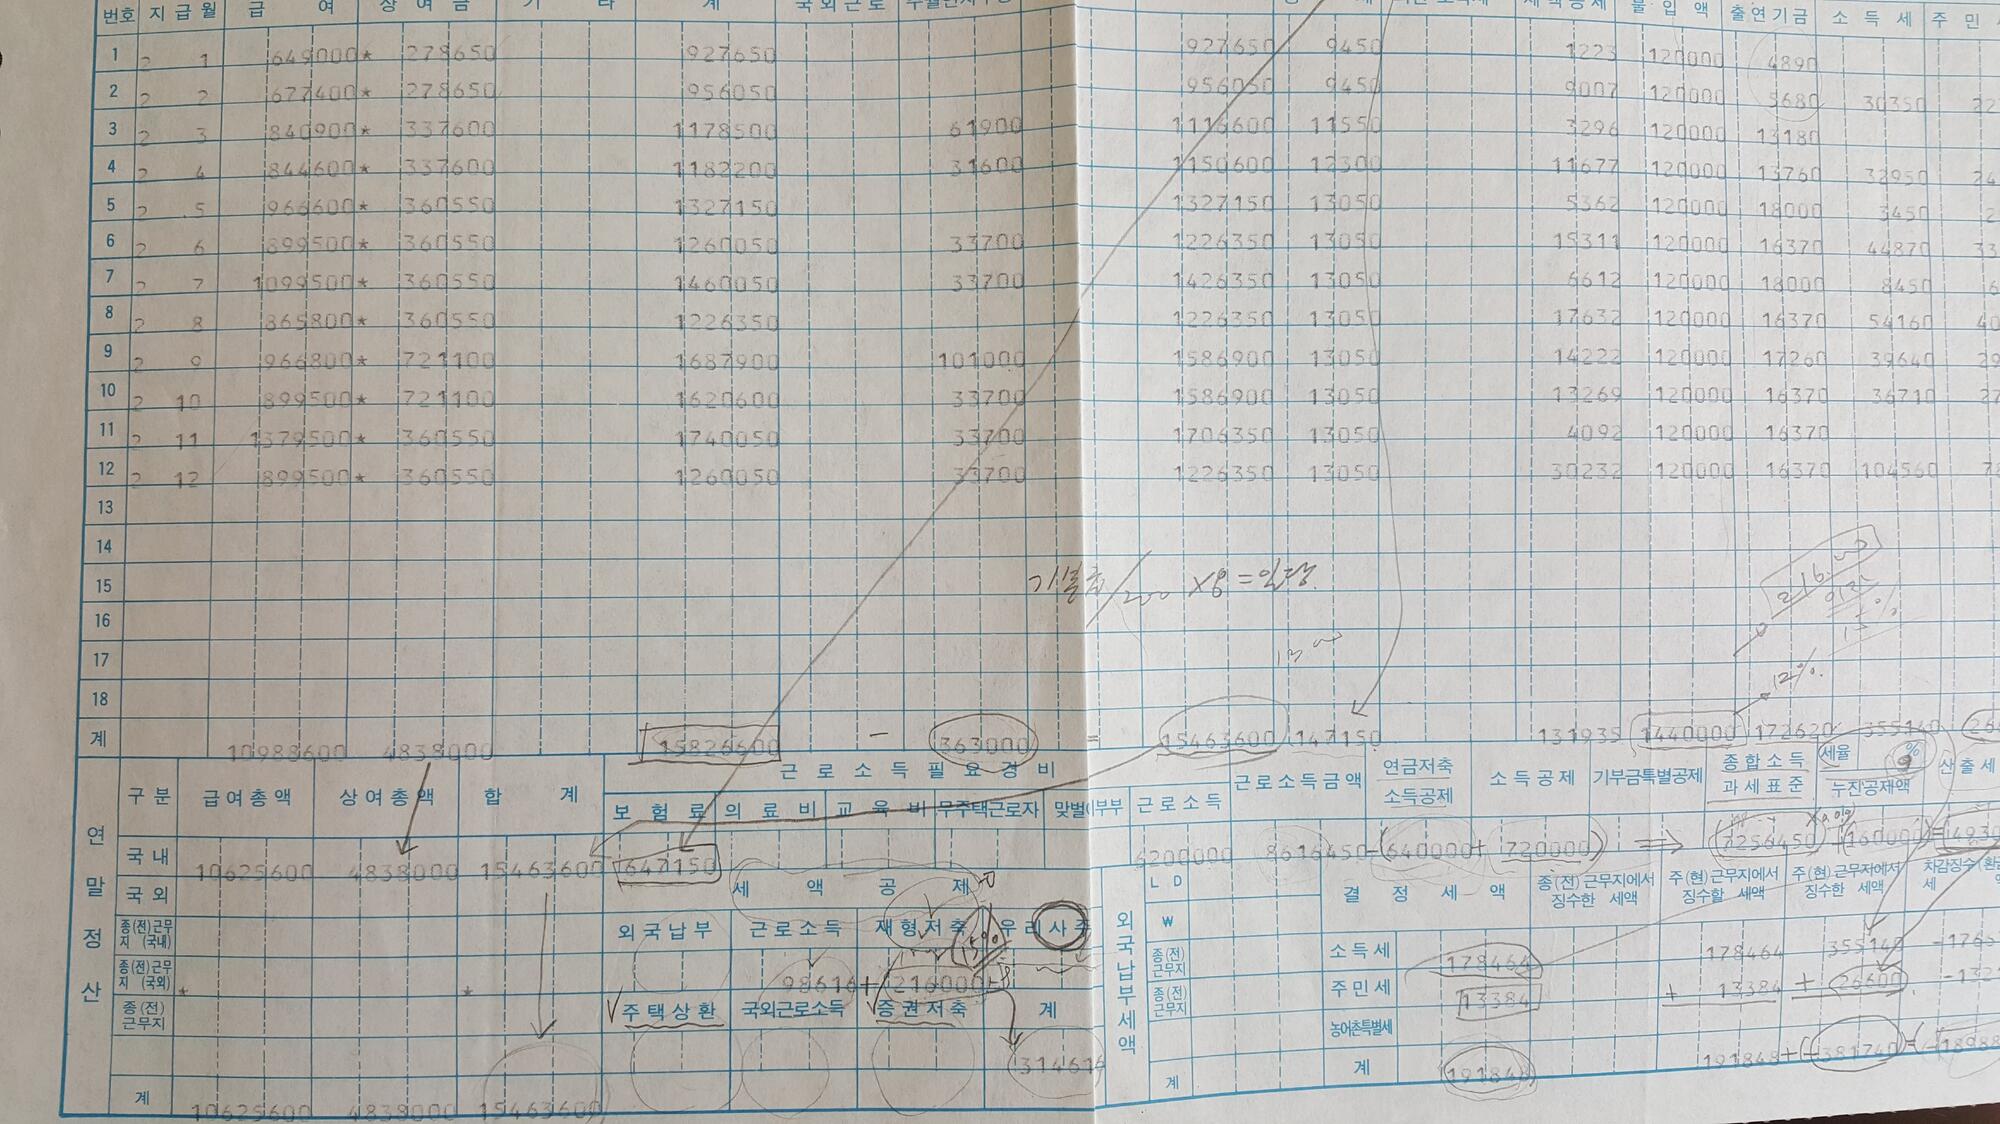 번호 지급월 급 여 상 여 금 기 타 계 국외근로 물 입 액 출연기금 소 득 세 주 민
1 2 1 649000* 278650 927650 927650 9450 1223 120000 4890
2 2 2 677400* 278650 956050 956050 9450 9007 120000 9680 30350
3 2 3 840900* 337600 1178500 61900 1116600 11550 3296 120000 13180
4 2 4 844600* 337600 1182200 31600 1150600 12300 11677 120000 13760 32950
5 2 5 966600* 360550 1327150 1327150 13050 5362 120000 18000 3450
6 2 6 899500* 360550 1260050 33700 1226350 13050 15311 120000 16370 44870
7 2 7 1099500* 360550 1460050 33700 1426350 13050 6612 120000 18000 8450
8 2 8 865800* 360550 1226350 1226350 13050 17632 120000 16370 54160
9 2 9 966800* 721100 1687900 101000 1586900 13050 14222 120000 17260 39640
10 2 10 899500* 721100 1620600 33700 1586900 13050 13269 120000 16370 36710
11 2 11 1379500* 360550 1740050 33700 1706350 13050 4092 120000 16370
12 2 12 899500* 360550 1260050 33700 1226350 13050 30232 120000 16370 104560
13
14
15
16
17
18
12%
계 10988600 4838000 15826600 - 363000 = 15463600 147150 131935 1440000 172620 355140
연 말 정 산
구분 급여총액 상여총액 합 계 근 로 소 득 필 요 경 비 근로소득금액 연금저축 소득공제 소득공제 기부금특별공제 종합소득 과세표준 세율 9 % 누진공제액 산출세
보 험 료 의 료 비 교 육 비 무주택근로자 맞벌이부부 근로소득
국내 10625600 4838000 15463600 647150 6200000 8616450 - (640000 + 720000) ⇒ (7256450 160000) =
국외 세 액 공 제
종(전)근무지 (국내) 외국납부 근로소득 재형저축 우리사주
15%
종(전)근무지 (국외) * * 98616 + 216000
종(전)근무지 주택상환 국외근로소득 증권저축 계
314616
계 10625600 4838000 15463600
외국납부세액
L D
₩
종(전)근무지
종(전)근무지
계
결 정 세 액 종(전)근무지에서 징수한 세액 주(현)근무지에서 징수할 세액 주(현)근무지에서 징수한 세액
소득세 178464 178464 355140
주민세 13384 + 13384 + 26600
농어촌특별세
계 191848 191848 + (-381740) =